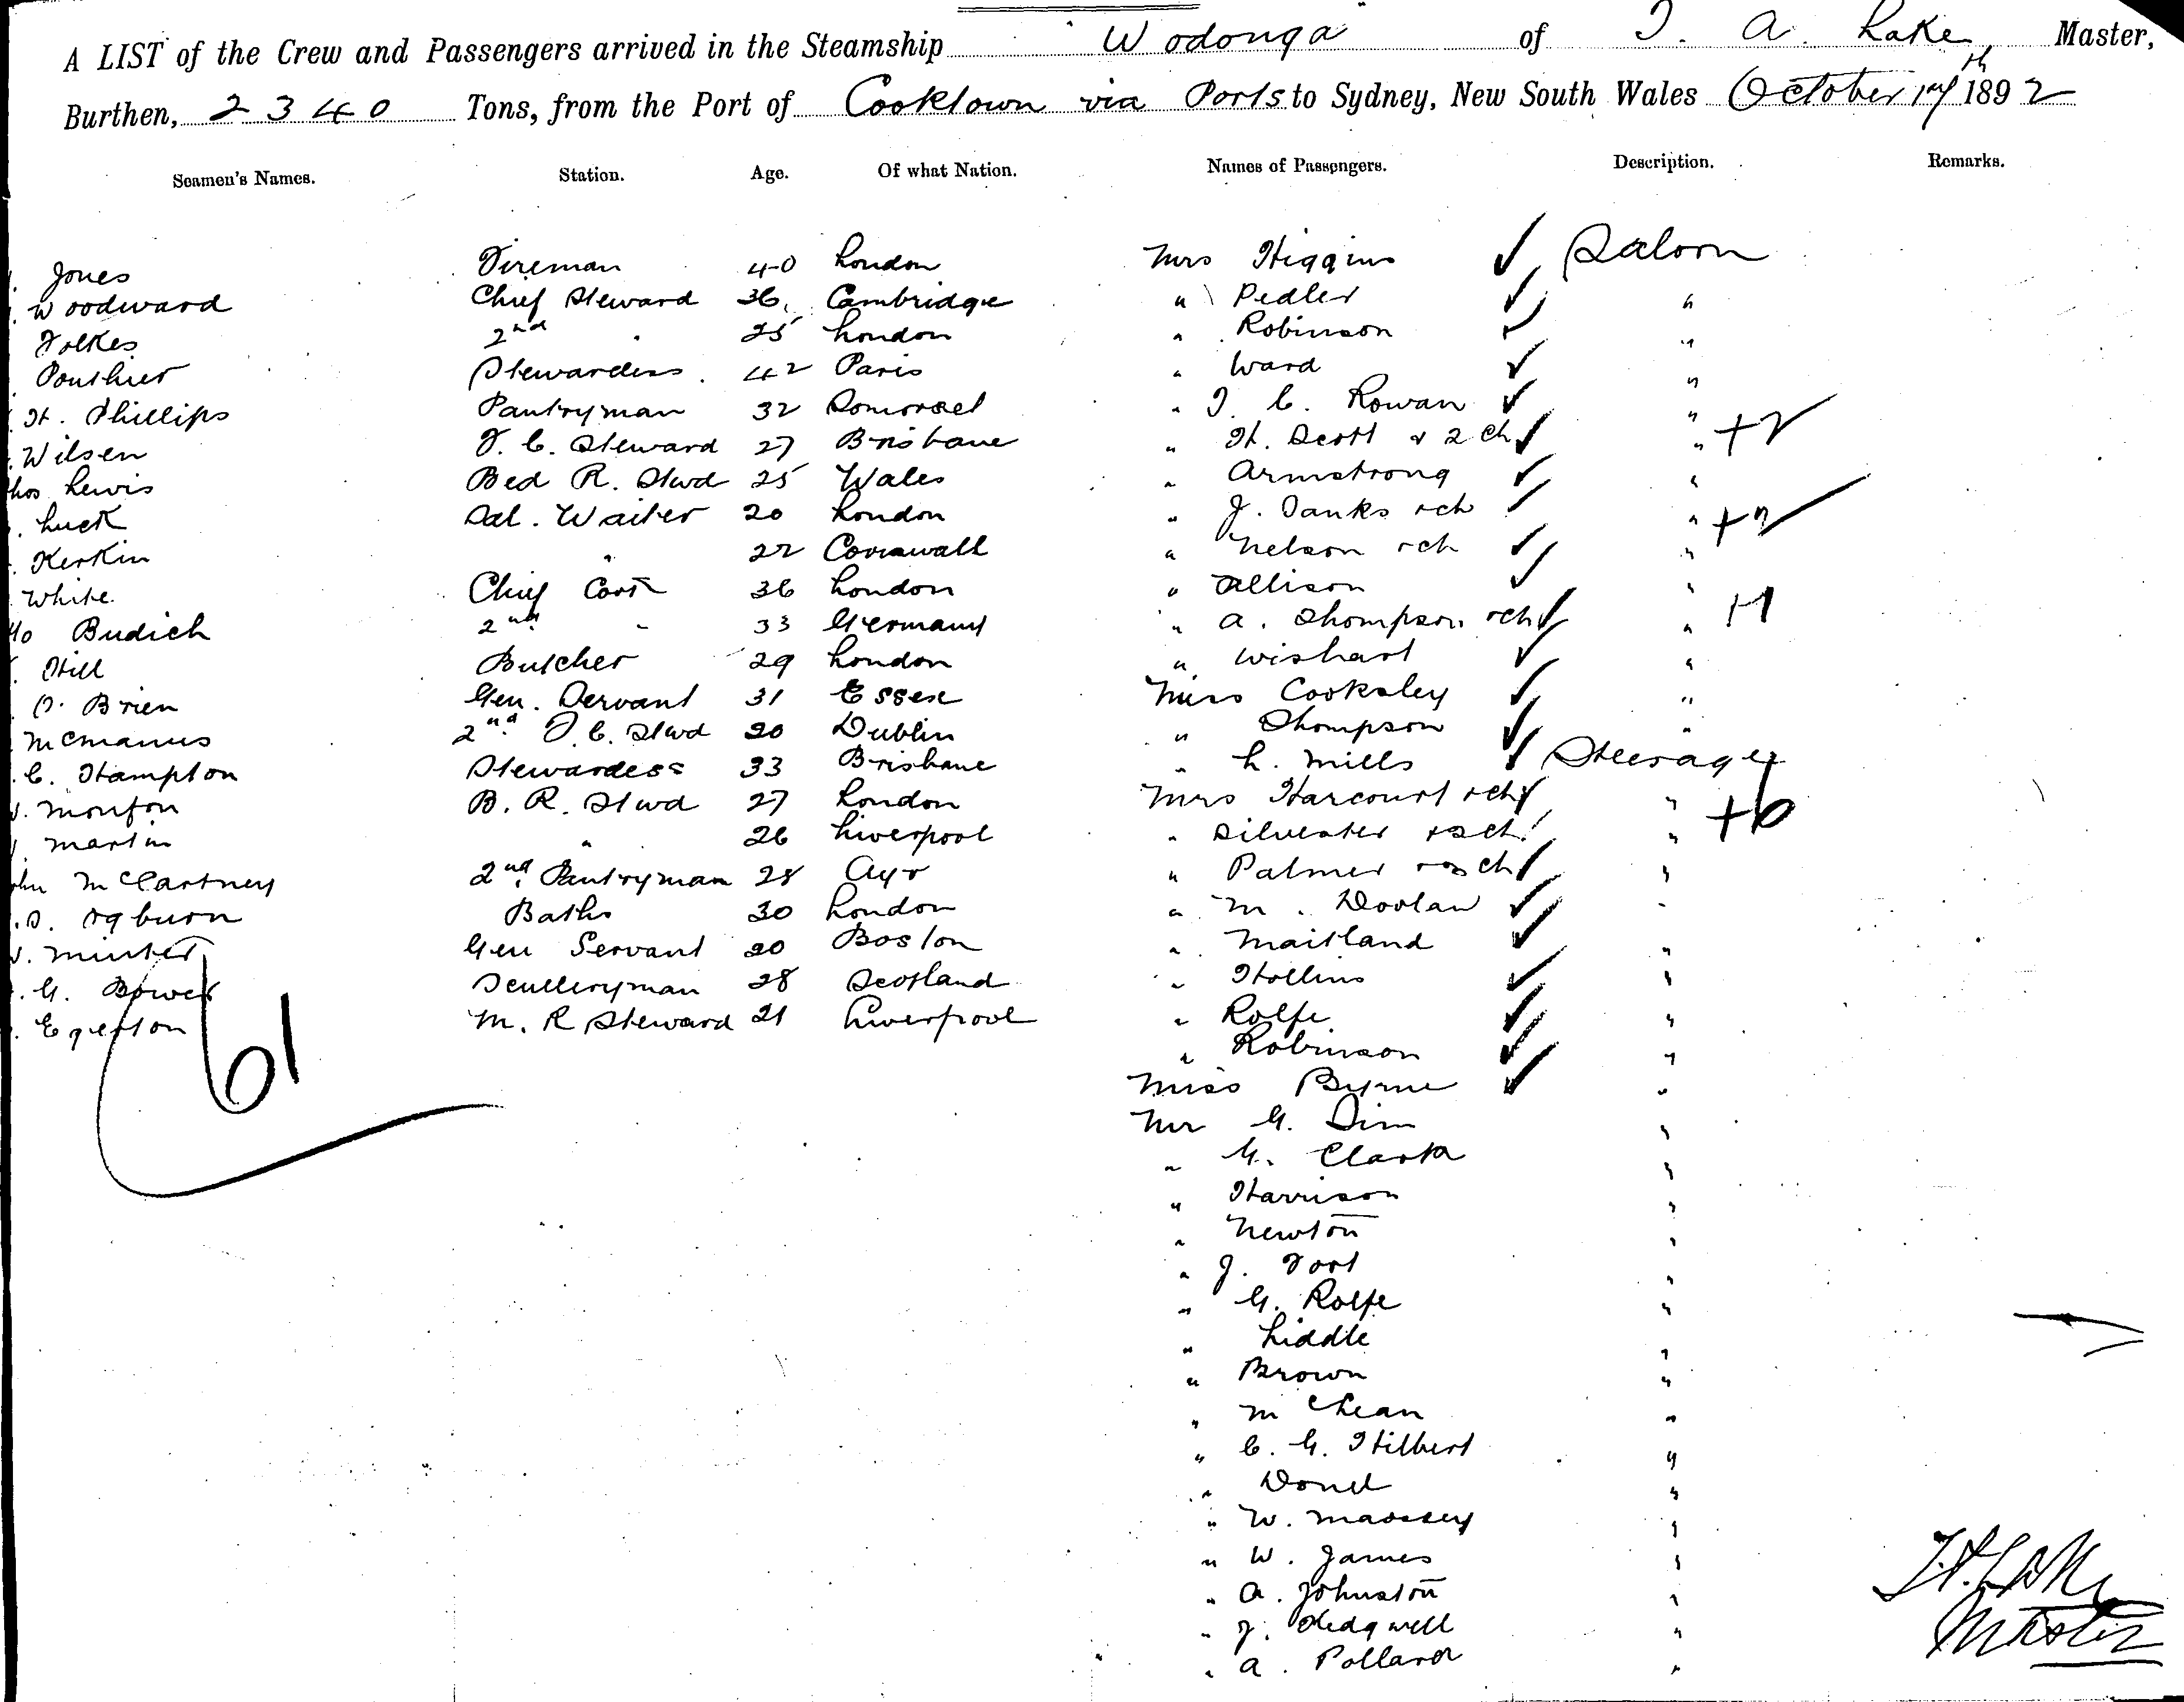 A LIST of the Crew and Passengers arrived in the Steamship "Wodonga" of T. A. Lake Master,
Burthen, 2340 Tons, from the Port of Cooktown via Ports to Sydney, New South Wales October 17th 1892
Seamen's Names. Station. Age. Of what Nation. Names of Passengers. Description. Remarks.
Jones Fireman 40 London Mrs Higgins ✓ Saloon
Woodward Chief Steward 36 Cambridge " Pedler ✓ "
Folkes 2nd " 25 London " Robinson ✓ "
Pouthier Stewardess 42 Paris " Ward ✓ "
H. Phillips Pantryman 32 Somerset " T. C. Rowan ✓ "
Wilsen F. C. Steward 27 Brisbane " H. Scott & 2 ch ✓ " +2
hos Lewis Bed R. Stwd 25 Wales " Armstrong ✓ "
Luck Sal. Waiter 20 London " J. Danks & ch ✓ " +2
Kerkin " 22 Cornwall " Nelson & ch ✓ "
White Chief Cook 36 London " Allison ✓ "
Budich 2nd " 33 Germany " A. Thompson & ch ✓ " +1
Hill Butcher 29 London " Wishart ✓ "
O'Brien Gen. Servant 31 Essex Miss Cooksley ✓ "
McManus 2nd F. C. Stwd 20 Dublin " Thompson ✓ "
C. Hampton Stewardess 33 Brisbane " L. Mills ✓ Steerage
Monfon B. R. Stwd 27 London Mrs Harcourt & ch ✓ "
Martin " 26 Liverpool " Silvester & 2 ch ✓ " +6
ohn McCartney 2nd Pantryman 28 Ayr " Palmer & 3 ch ✓ "
Ogburn Baths 30 London " M. Doolan ✓ "
Minter Gen Servant 20 Boston " Maitland ✓ "
G. Bower Sculleryman 28 Scotland " Hollins ✓ "
Egerton M. R Steward 21 Liverpool " Rolfe ✓ "
61 " Robinson ✓ "
Miss Byrne ✓ "
Mr G. Sim "
" G. Clark "
" Harrison "
" Newton "
" J. Fort "
" G. Rolfe "
" Liddle "
" Brown "
" McLean "
" C. G. Hilbert "
" Donel "
" W. Massey "
" W. James "
" A. Johnston "
" J. Sedgwell "
" A. Pollard "
T. A. Lake
Master